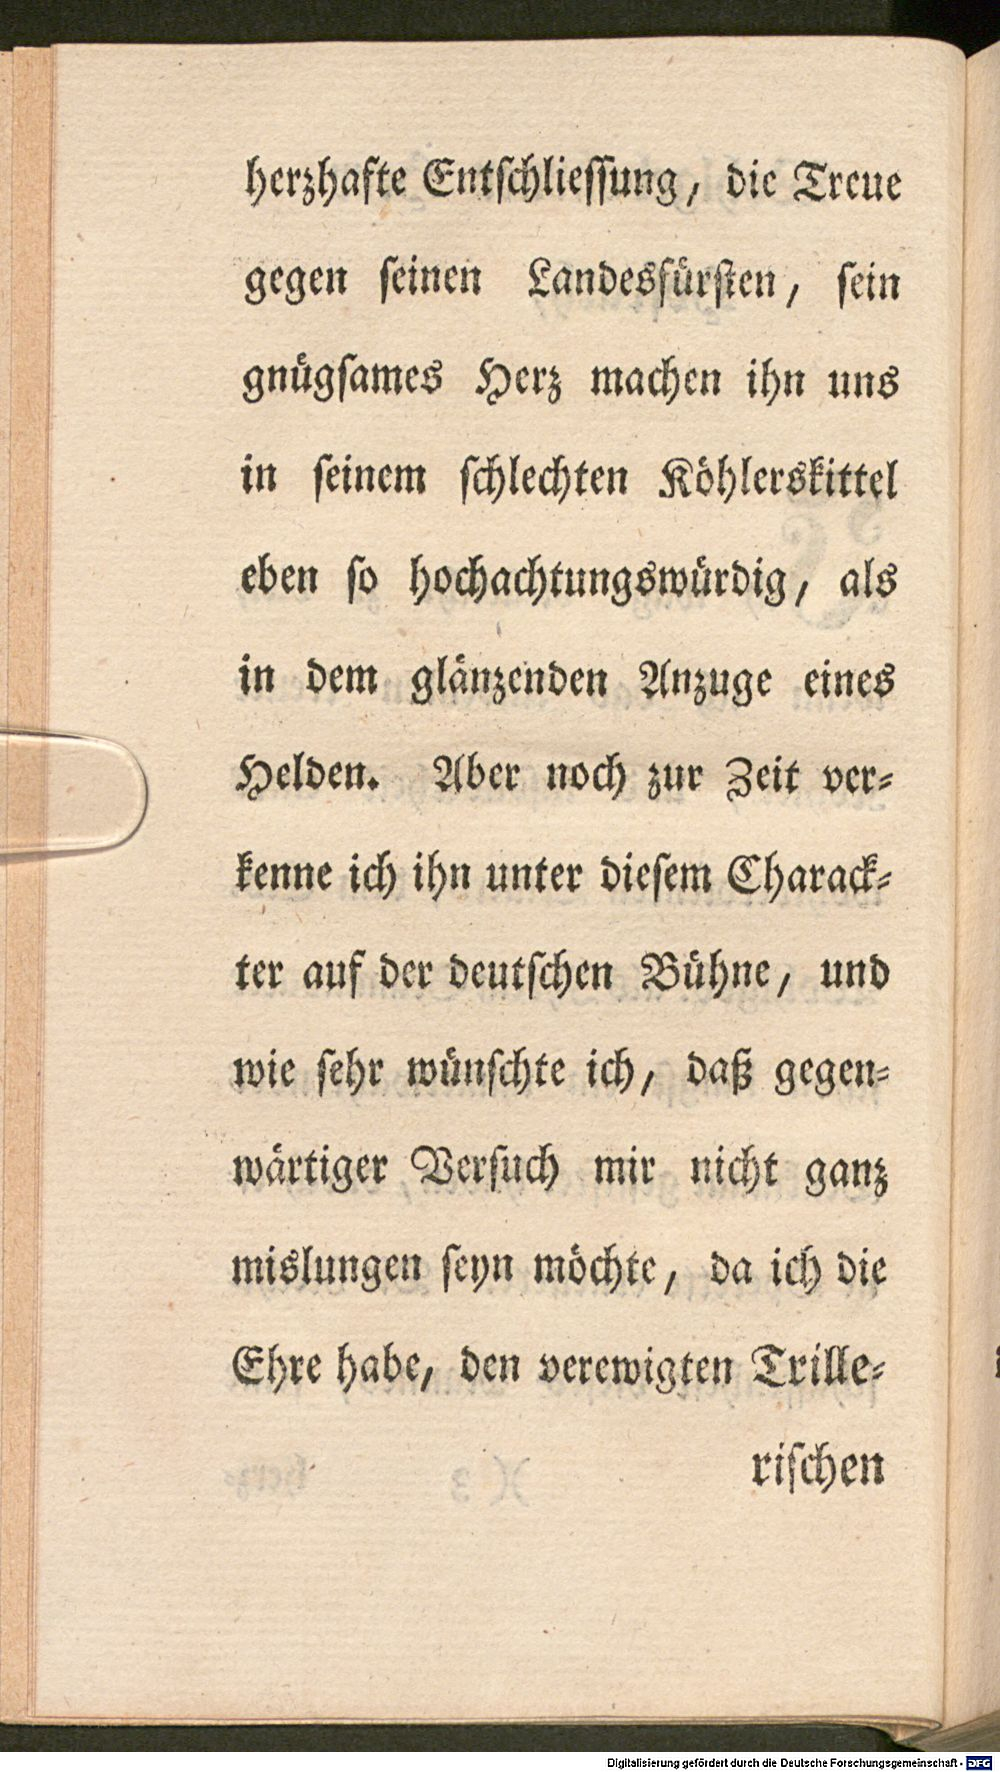 herzhafte Entſchlieſſung, die Treue
gegen ſeinen Landesfürſten, ſein
gnügſames Herz machen ihn uns
in ſeinem ſchlechten Köhlerskittel
eben ſo hochachtungswürdig, als
in dem glänzenden Anzuge eines
Helden. Aber noch zur Zeit ver-
kenne ich ihn unter dieſem Charack-
ter auf der deutſchen Bühne, und
wie ſehr wünſchte ich, daß gegen-
wärtiger Verſuch mir nicht ganz
mislungen ſeyn möchte, da ich die
Ehre habe, den verewigten Trille-
riſchen
Digitalisierung gefördert durch die Deutsche Forschungsgemeinschaft - DFG